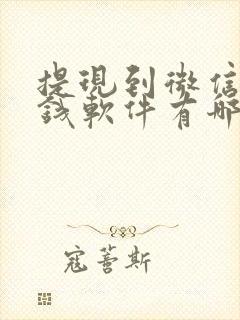 提現到微信
錢軟件有哪
寇薈斯